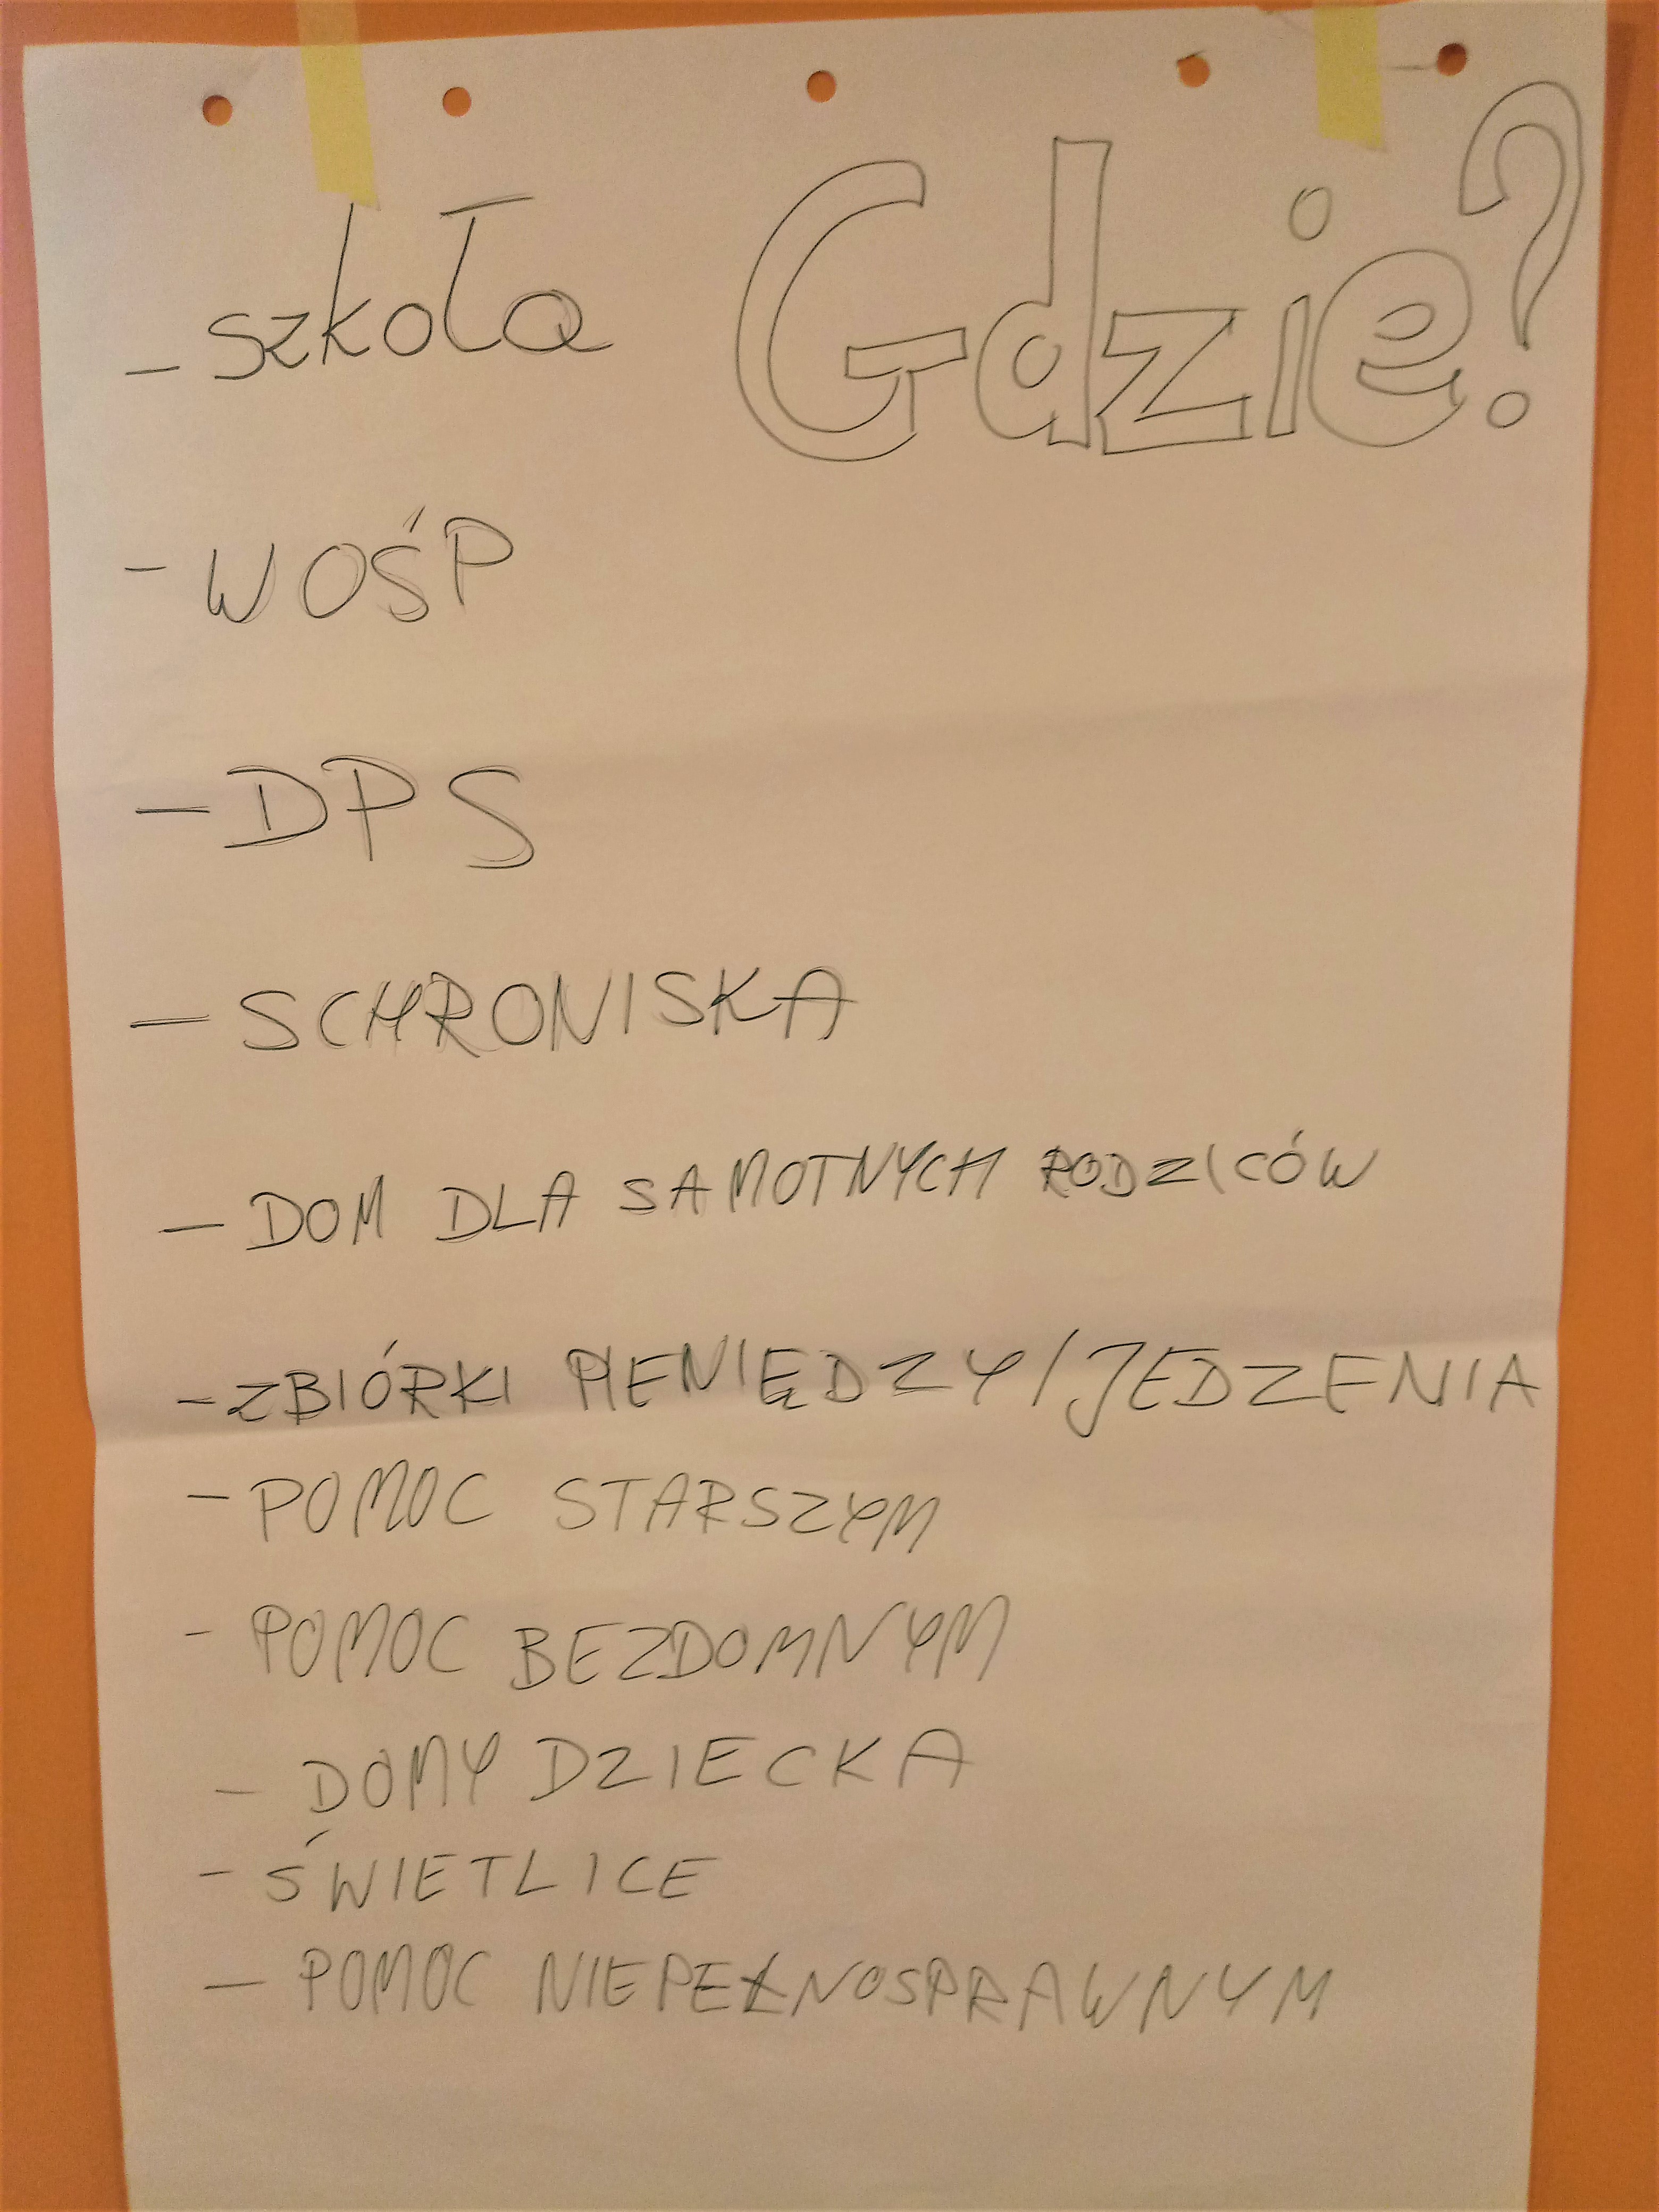 Gdzie?
- szkoła
- WOŚP
- DPS
- SCHRONISKA
- DOM DLA SAMOTNYCH RODZICÓW
- ZBIÓRKI PIENIĘDZY/JEDZENIA
- POMOC STARSZYM
- POMOC BEZDOMNYM
- DOMY DZIECKA
- ŚWIETLICE
- POMOC NIEPEŁNOSPRAWNYM